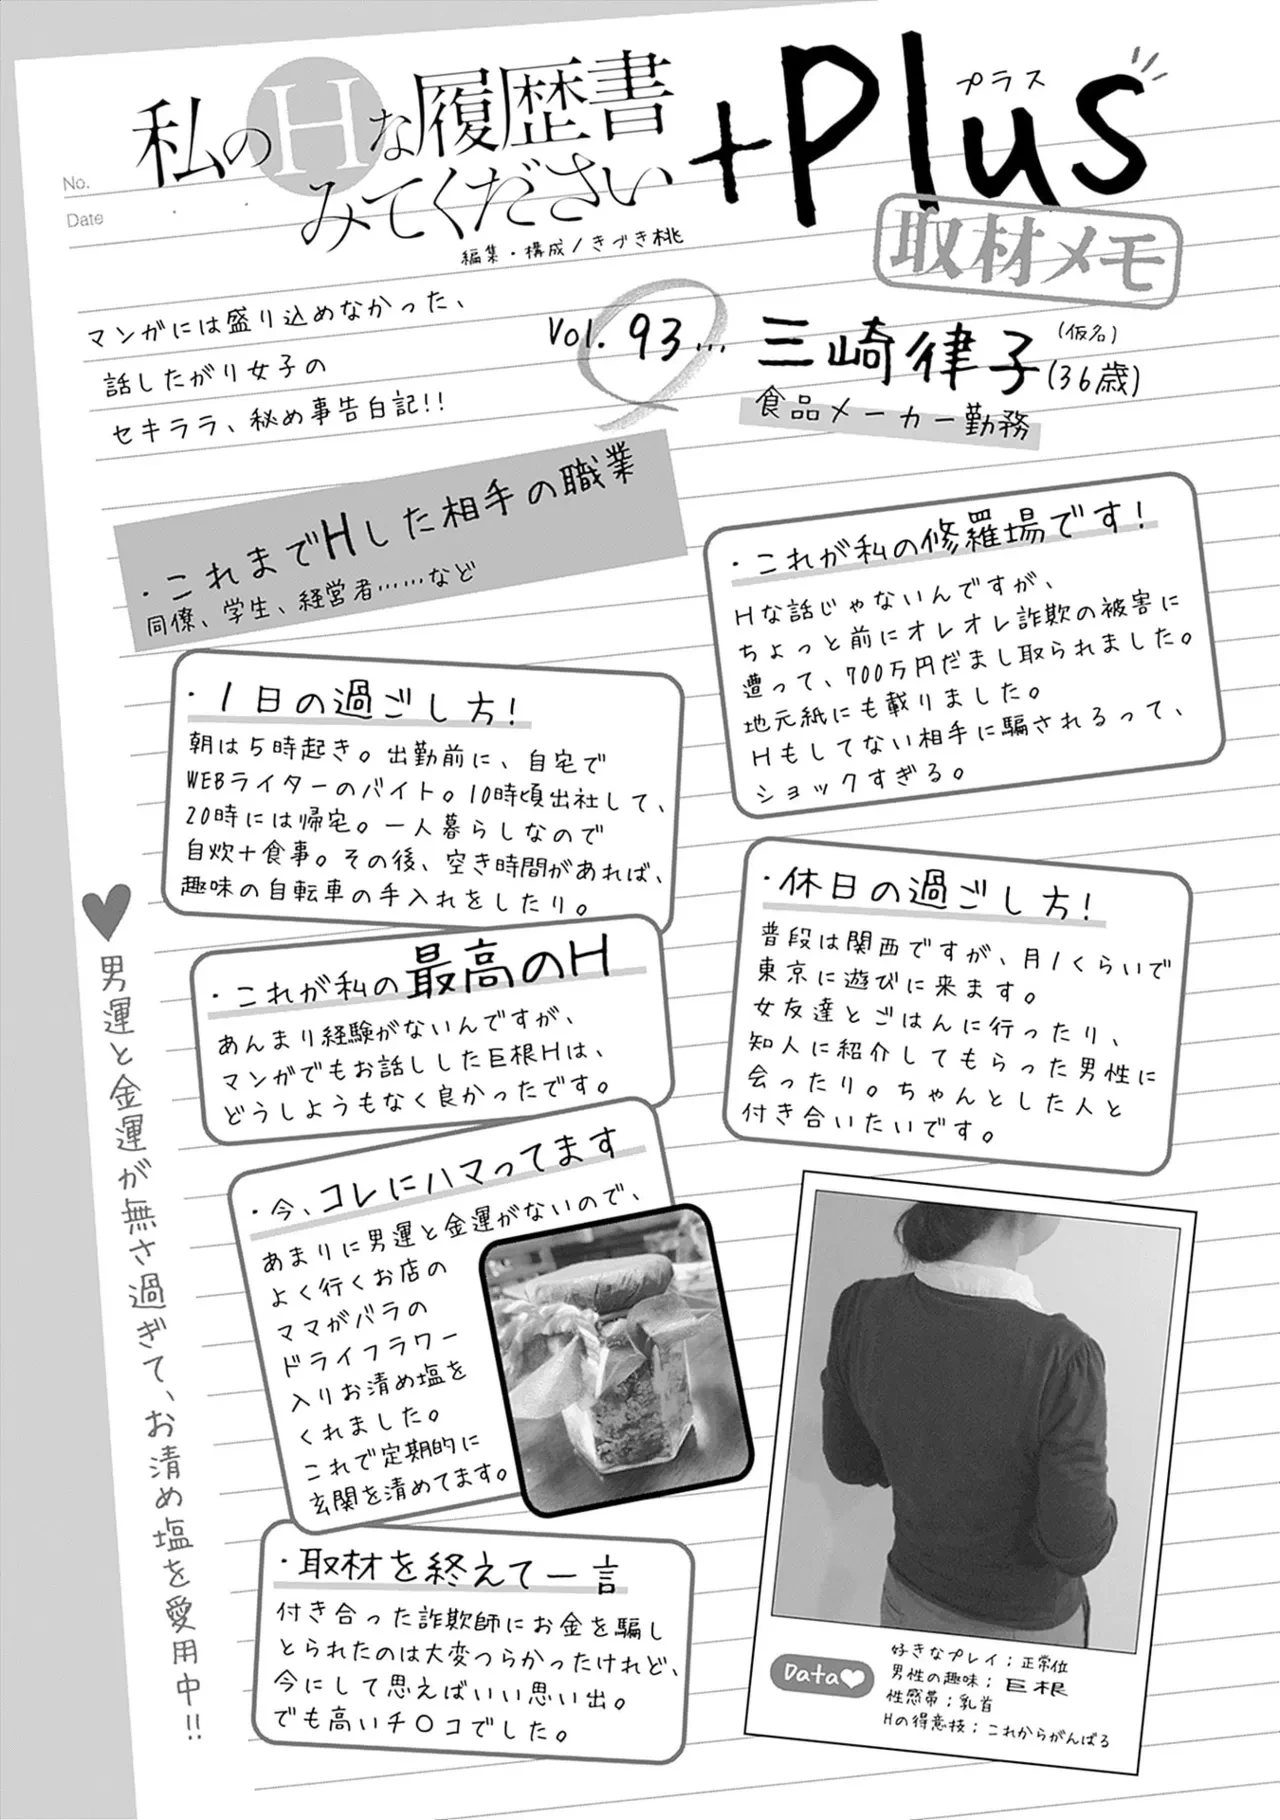 No.
Date
私のHな履歴書
みてください
+Plus
プラス
編集・構成/きづき桃
取材メモ
マンガには盛り込めなかった、
話したがり女子の
セキララ、秘め事告白記!!
Vol. 93...
三崎律子
(仮名)
(36歳)
食品メーカー勤務
・これまでHした相手の職業
同僚、学生、経営者……など
・これが私の修羅場です!
Hな話じゃないんですが、
ちょっと前にオレオレ詐欺の被害に
遭って、700万円だまし取られました。
地元紙にも載りました。
Hもしてない相手に騙されるって、
ショックすぎる。
・1日の過ごし方!
朝は5時起き。出勤前に、自宅で
WEBライターのバイト。10時頃出社して、
20時には帰宅。一人暮らしなので
自炊+食事。その後、空き時間があれば、
趣味の自転車の手入れをしたり。
・休日の過ごし方!
普段は関西ですが、月1くらいで
東京に遊びに来ます。
女友達とごはんに行ったり、
知人に紹介してもらった男性に
会ったり。ちゃんとした人と
付き合いたいです。
・これが私の最高のH
あんまり経験がないんですが、
マンガでもお話しした巨根Hは、
どうしようもなく良かったです。
・今、コレにハマってます
あまりに男運と金運がないので、
よく行くお店の
ママがバラの
ドライフラワー
入りお清め塩を
くれました。
これで定期的に
玄関を清めてます。
♥男運と金運が無さ過ぎて、お清め塩を愛用中!!
・取材を終えて一言
付き合った詐欺師にお金を騙し
とられたのは大変つらかったけれど、
今にして思えばいい思い出。
でも高いチ〇コでした。
Data♥
好きなプレイ;正常位
男性の趣味;巨根
性感帯;乳首
Hの得意技;これからがんばる